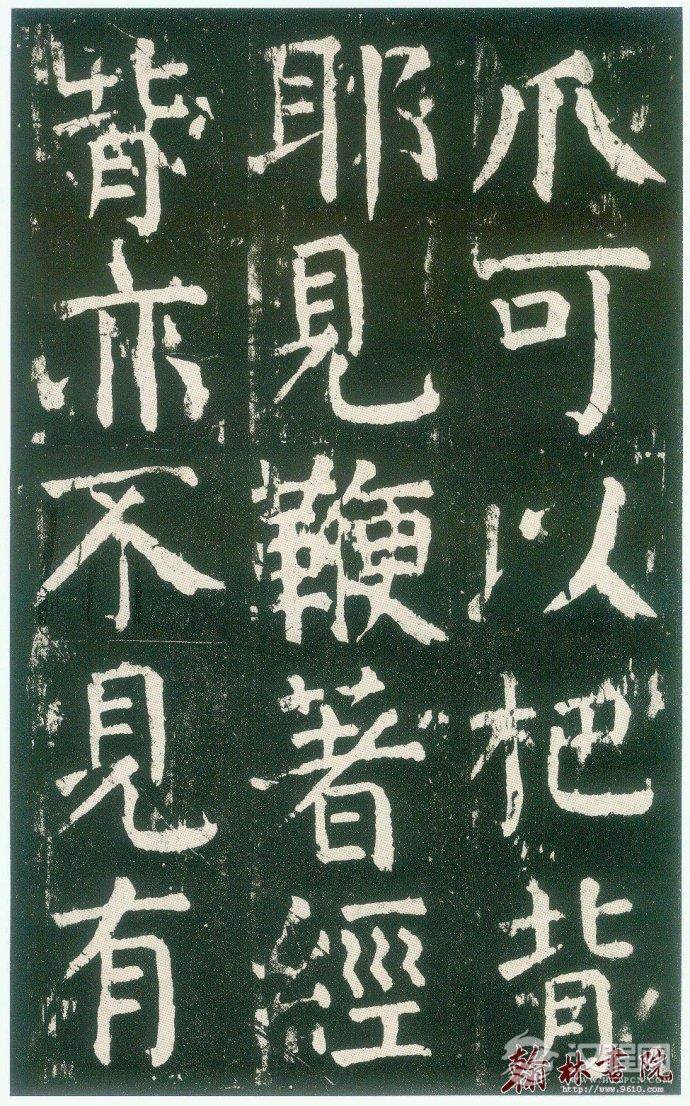 爪可以杷背
耶見鞭著經
背亦不見有
翰林書院
http://www.9610.com